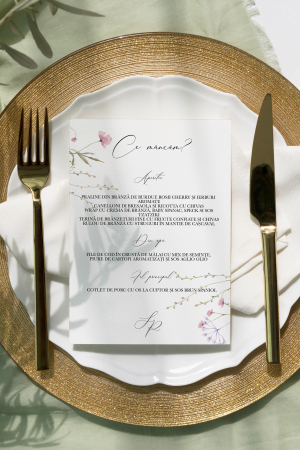 Ce mâncăm?
Aperitiv
PRALINE DIN BRÂNZĂ DE BURDUF ROȘII CHERRY ȘI IERBURI
AROMATE
CANELLONI DE BRESAOLA ȘI RICOTTA CU GHIVAS
WRAP CU CREMA DE BRÂNZĂ, BABY SPANAC, SPECK ȘI SOS
TZATZIKI
TERINĂ DE BRÂNZETURI FINE CU FRUCTE CONFIATE ȘI CHIVAS
RULOU DE BRÂNZĂ CU STRUGURI ÎN MANTIE DE CAȘCAVAL
Din apă
FILE DE COD ÎN CRUSTĂ DE MĂLAI CU MIX DE SEMINȚE,
PIURE DE CARTOFI AROMATIZAT ȘI SOS AGLIO OLIO
Fel principal
COTLET DE PORC CU OS LA CUPTOR ȘI SOS BRUN SPANIOL